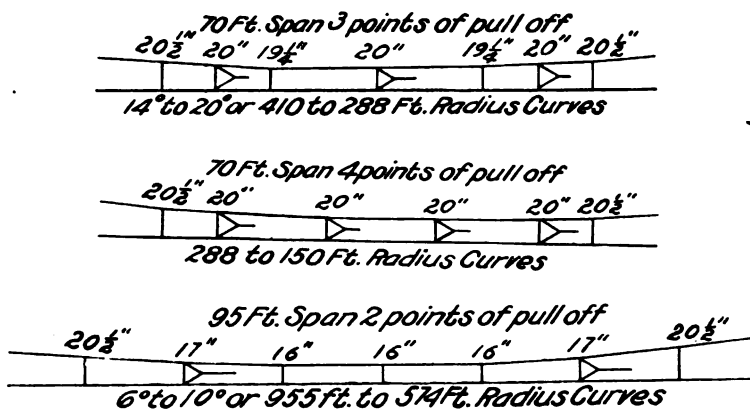 70 Ft. Span 3 points of pull off
20½" 20" 19¼" 20" 19¼" 20" 20½"
14° to 20° or 410 to 288 Ft. Radius Curves
70 Ft. Span 4 points of pull off
20½" 20" 20" 20" 20" 20½"
288 to 150 Ft. Radius Curves
95 Ft. Span 2 points of pull off
20½" 17" 16" 16" 16" 17" 20½"
6° to 10° or 955 ft. to 574 Ft. Radius Curves